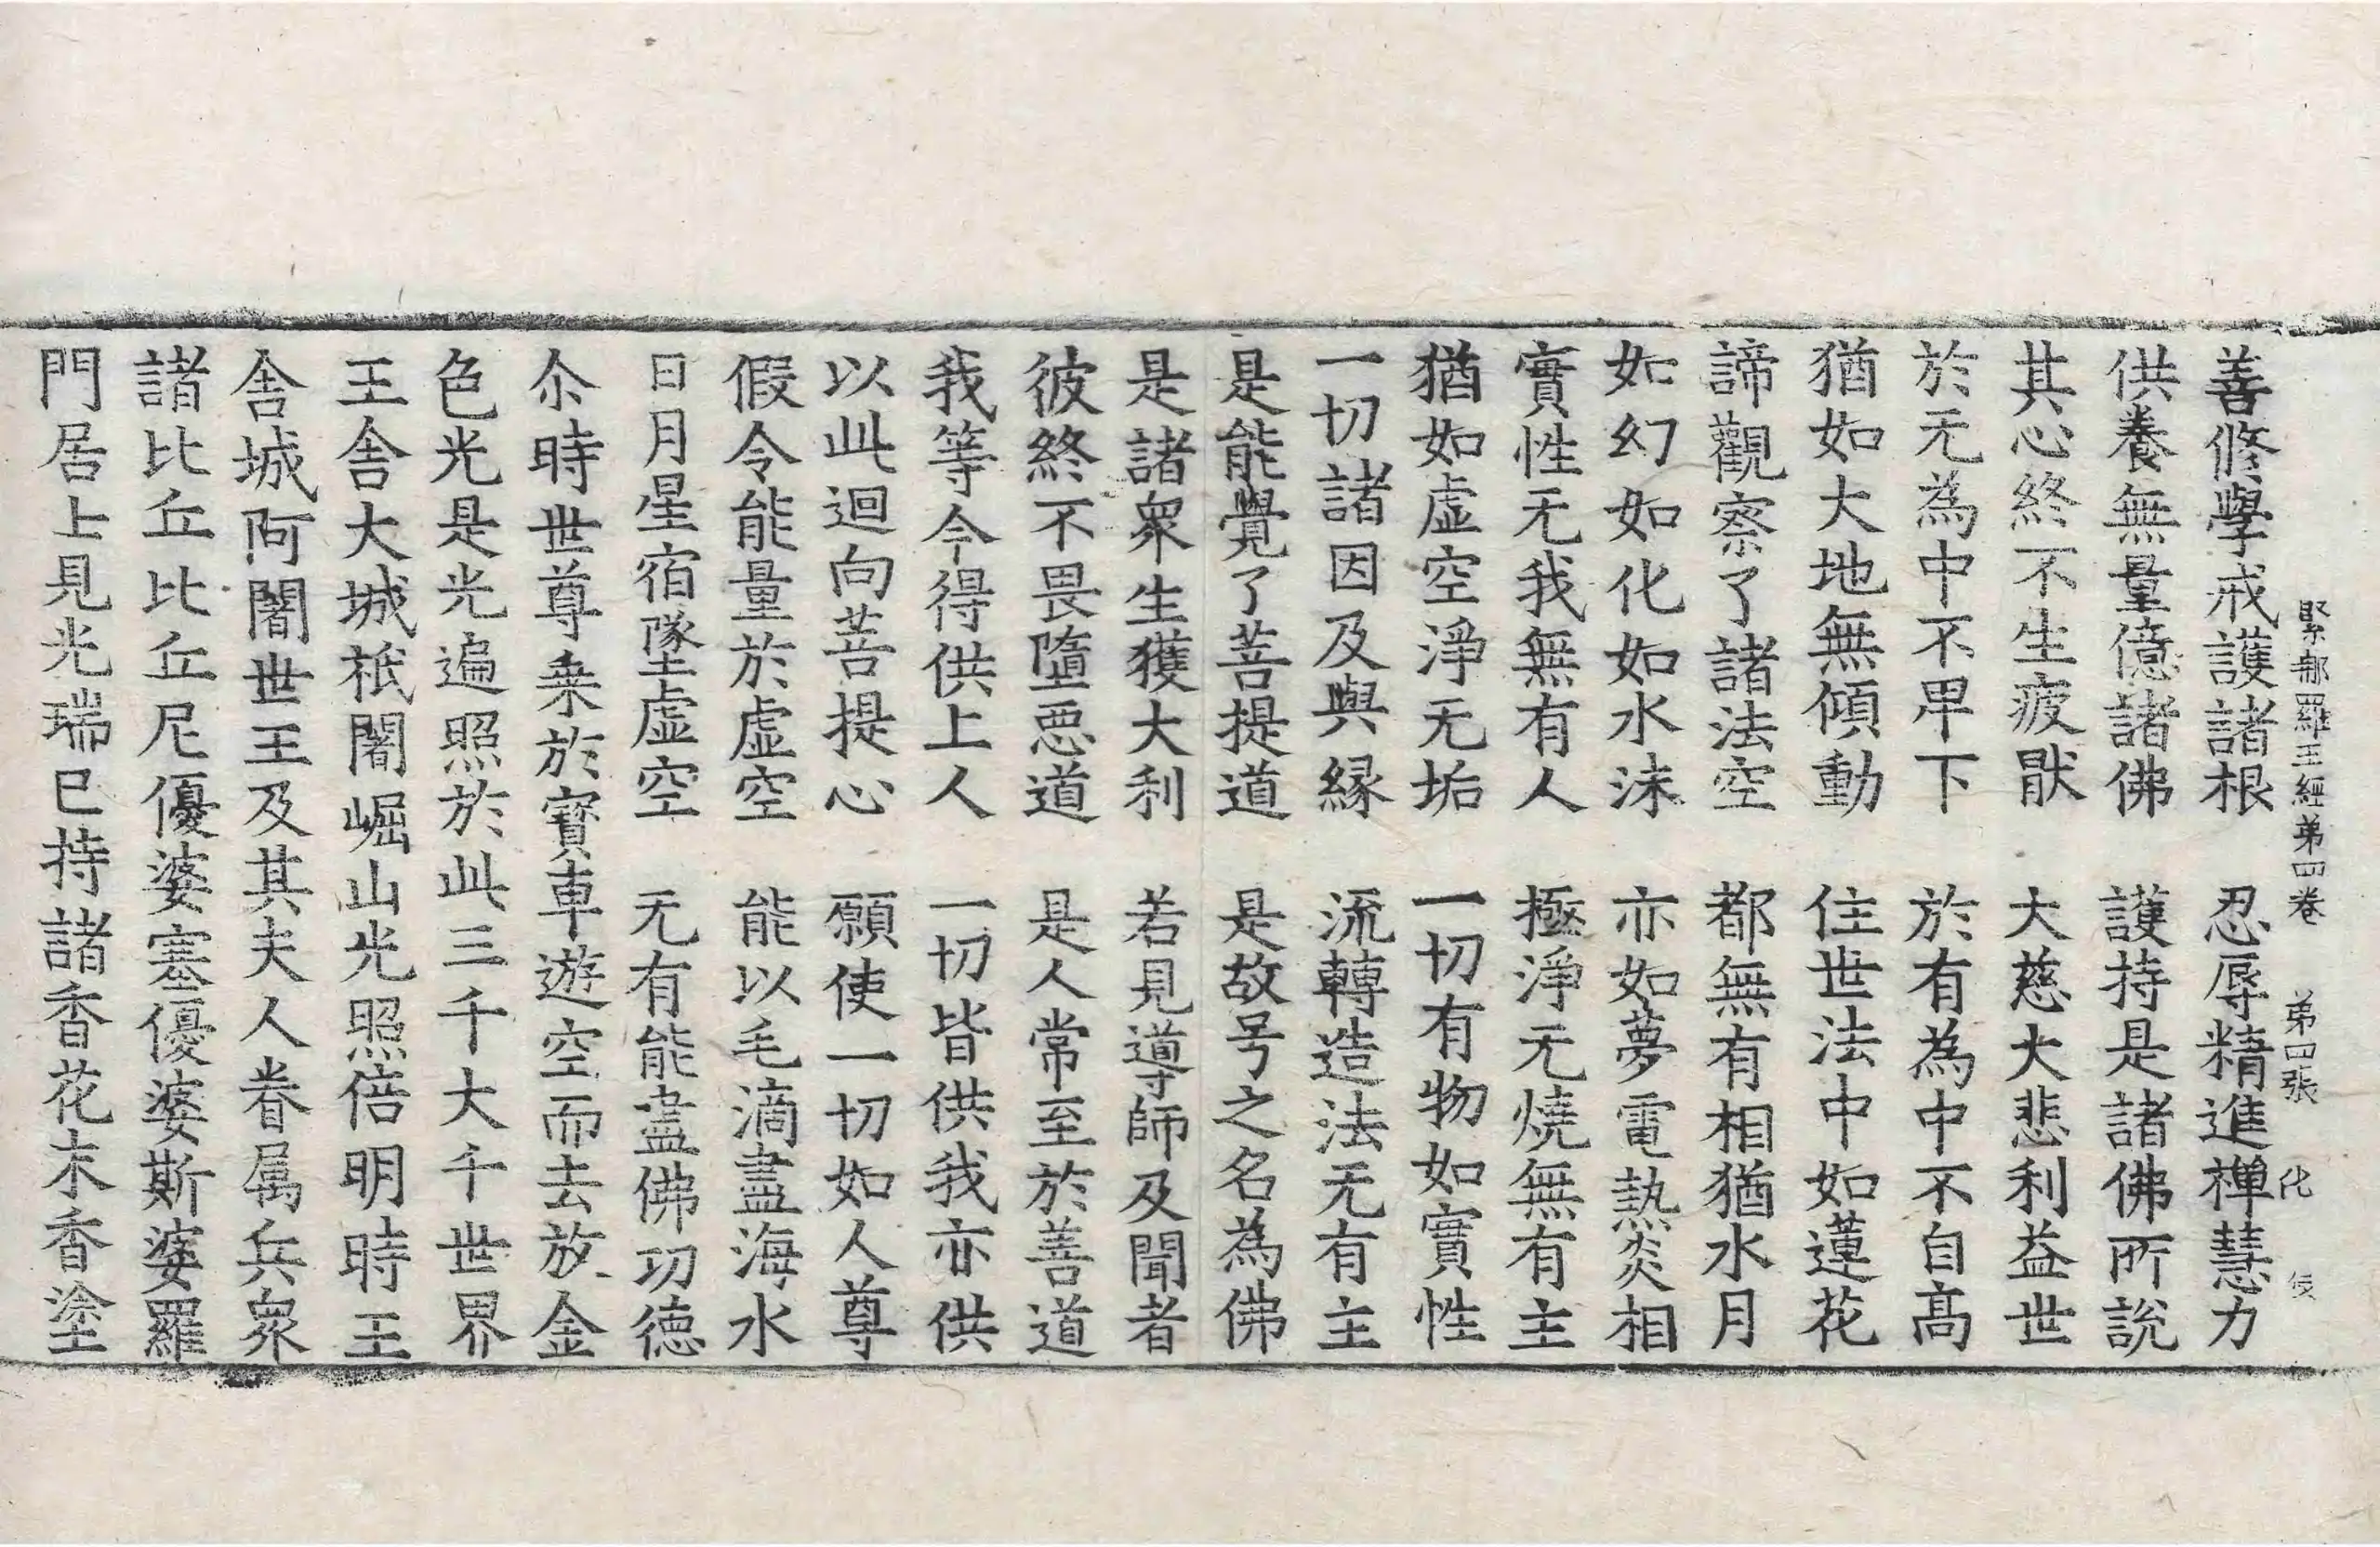 緊那羅王經弟四卷　弟四張　化
善修學戒護諸根　忍辱精進禅慧力
供養無量億諸佛　護持是諸佛所說
其心終不生疲猒　大慈大悲利益世
於无為中不早下　於有為中不自高
猶如大地無傾動　住世法中如蓮花
諦觀察了諸法空　都無有相猶水月
如幻如化如水沫　亦如夢電熱炎相
實性无我無有人　極淨无燒無有主
猶如虛空淨无垢　一切有物如實性
一切諸因及與緣　流轉造法无有主
是能覺了菩提道　是故号之名為佛
是諸衆生獲大利　若見導師及聞者
彼終不畏墮惡道　是人常至於善道
我等今得供上人　一切皆供我亦供
以此迴向菩提心　願使一切如人尊
假令能量於虛空　能以毛滴盡海水
日月星宿墜虛空　无有能盡佛功德
尒時世尊乗於寶車遊空而去放金
色光是光遍照於此三千大千世界
王舍大城祇闍崛山光照倍明時王
舍城阿闍世王及其夫人眷属兵衆
諸比丘比丘尼優婆塞優婆斯婆羅
門居士見光瑞已持諸香花末香塗